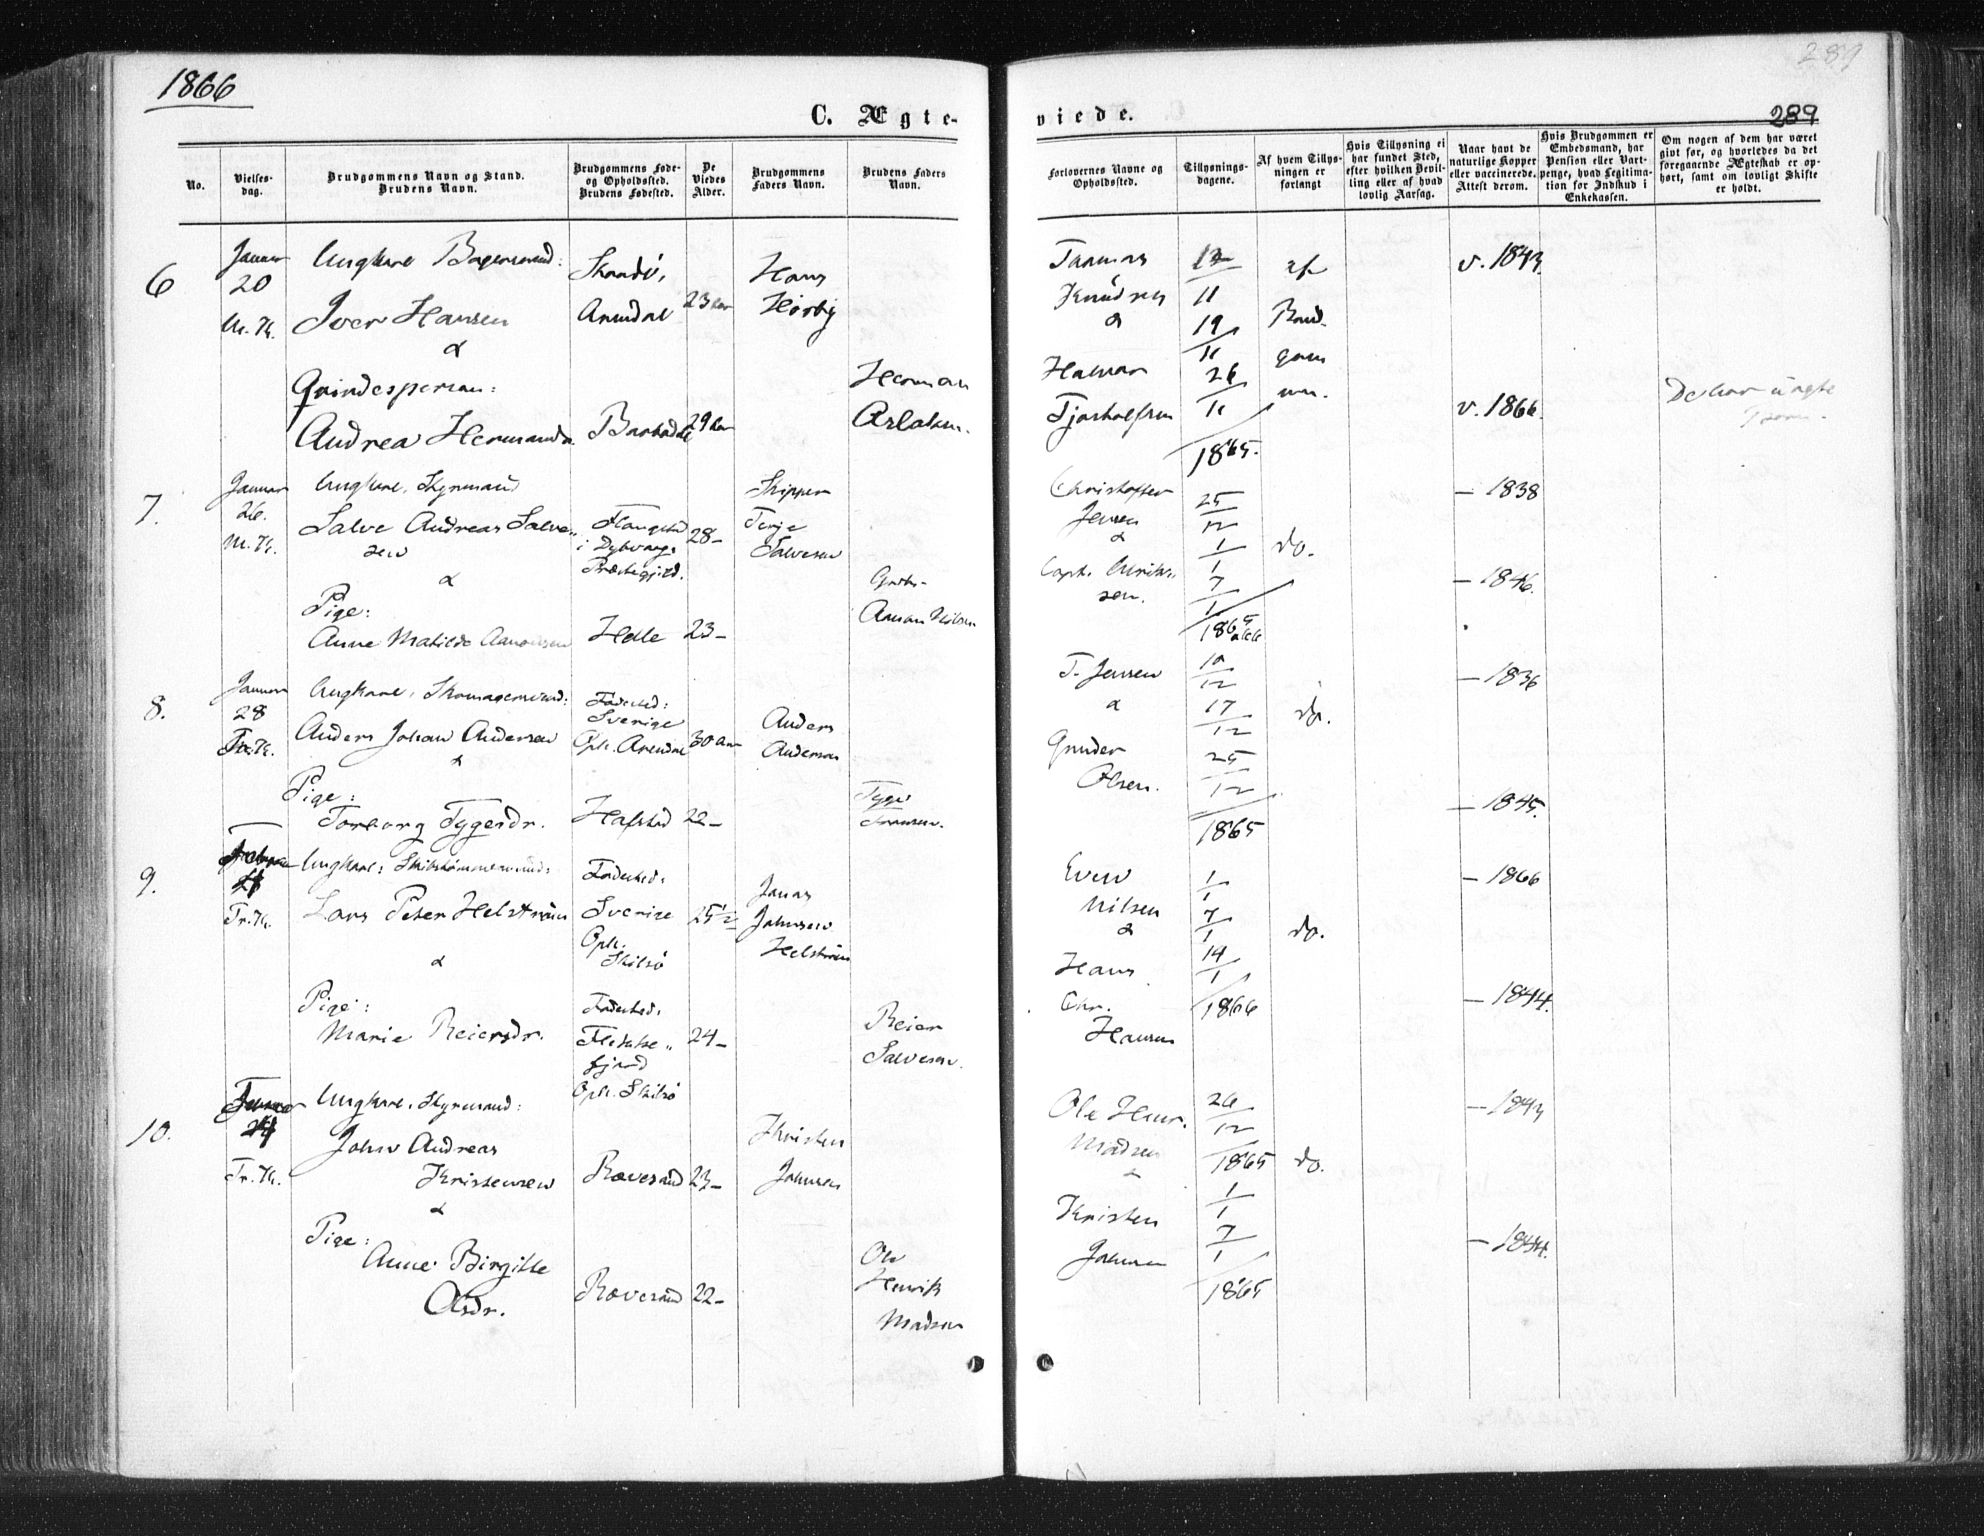 1866
289
289
C. Ægte-
viede.
No.
Vielses-
dag.
Brudgommens Navn og Stand.
Brudens Navn.
Brudgommens Føde-
og Opholdssted.
Brudens Fødested.
De
Viedes
Alder.
Brudgommens
Faders Navn.
Brudens Faders
Navn.
Forlovernes Navne og
Opholdssted.
Tillysnings-
dagene.
Af hvem Tillys-
ningen er
forlangt
Hvis Tillysning ei
har fundet Sted,
efter hvilken Bevil-
ling eller af hvad
lovlig Aarsag.
Naar havt de
naturlige Kopper
eller vaccinerede.
Attest derom.
Hvis Brudgommen er
Embedsmand, har
Pension eller Vart-
penge, hvad Legitima-
tion for Indskud i
Enkekassen.
Om nogen af dem har været
givt før, og hvorledes da det
foregaaende Ægteskab er op-
hørt, samt om lovligt Skifte
er holdt.
6
Januar
20
Ungkarl
Iver Hansen
&
Qvindesperson:
Andrea
Arendal
23
29
Hans
Hørby
Herman
Aslaksen.
Knudsen
&
Halvor
12
11
19
11
26
11
1865.
af
Brud-
gom
men.
v. 1843
v. 1866
7.
Januar
26.
Ungkarl, Styrmand
Salve Andreas Salve-
sen
&
Pige:
Anne Matilde
i Dybvaags
Præstegjeld.
Helle
28-
23-
Skipper
Terje
Salvesen
Christoffer
Jensen
&
25
12
1
1
7
1
1865
do.
- 1838
- 1846.
8.
Januar
28
Ungkarl,
Anders Johan Andersen
&
Pige:
Torborg Tygesdr.
Fødested:
Sverige
Oph. Arendal
30
22-
Anders
Anderson
Tyge
T. Jensen
&
Gunder
Olsen.
10
12
17
12
25
12
1865
do.
- 1836
- 1845.
9.
Tr. K.
Ungkarl:
Lars Peter Helström
&
Pige:
Marie Reiersdr.
Fødested:
Sverige
Oph.
Skilsö
Fødested:
Flekke-
fjord
Oph. Skilsö
25½
24-
Jonas
Johnsen
Helström
Reier
Salvesen.
Even
Nilsen
&
Hans
Chr.
Hansen
1
1
7
1
14
1
1866
do.
- 1866
- 1844.
10.
Tr. K.
Ungkarl, Styrmand:
John Andreas
Kristensen
&
Pige:
Anne Birgitte
Olsdr.
Rævesand
Rævesand
23-
22-
Kristen
Johnsen
Ole
Henrik
Madsen
Ole Henr.
Madsen
&
Kristen
Johnsen
26
12
1865
1
1
7
1
1865
do.
- 1843
- 1844.